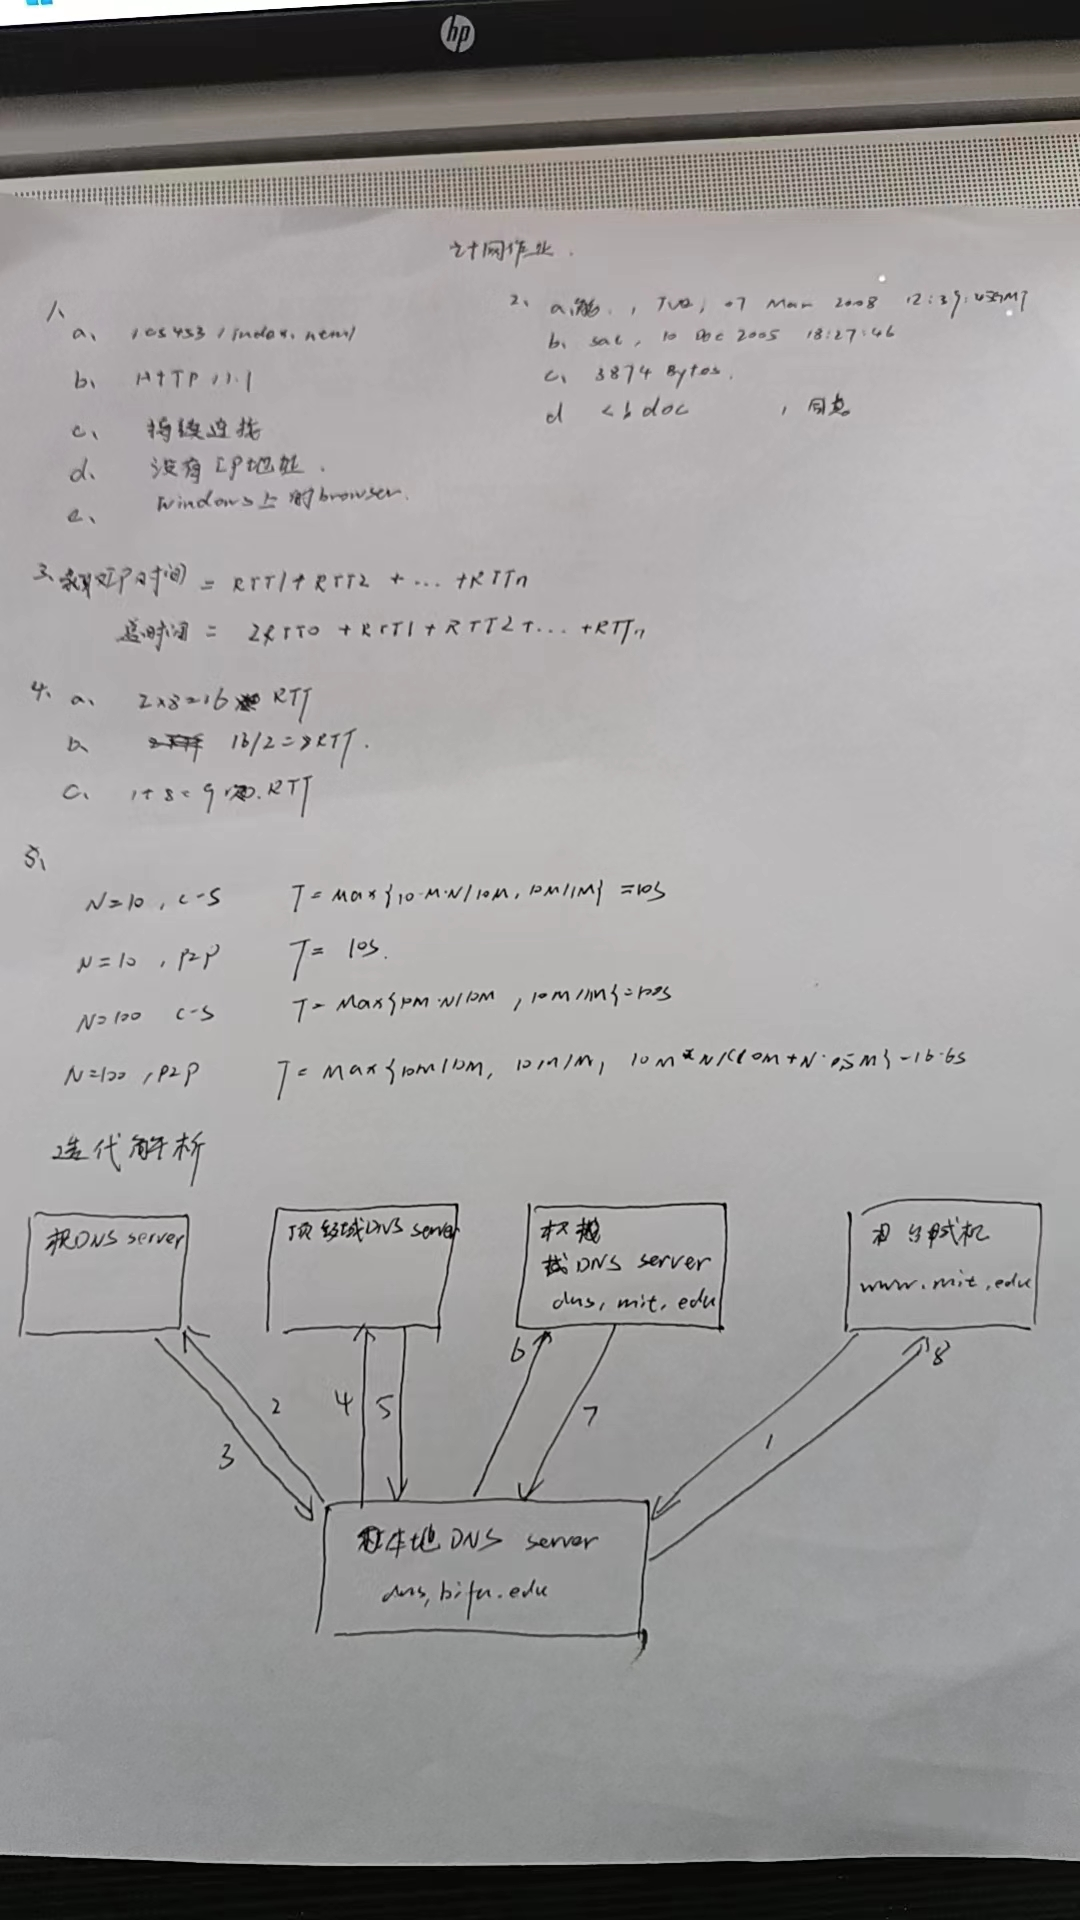 hp
计网作业.
1、
a、 /cs453/index.html
b、 HTTP 1.1
c、 持续连接
d、 没有IP地址.
e、 Windows上的browser.
2、 a. , Tue, 07 Mar 2008 12:39:45GMT
b、 Sat, 10 Dec 2005 18:27:46
c、 3874 Bytes.
d <!doc , 同意
3、获取IP时间 = RTT1 + RTT2 + ... + RTTn
总时间 = 2RTT0 + RTT1 + RTT2 + ... + RTTn
4、 a、 2×8=16 RTT
b、 16/2=8RTT.
c、 1+8=9 RTT
5、
N=10, C-S T = Max{10·M·N/10M, 10M/1M} = 10s
N=10, P2P T= 10s.
N=100 C-S T= Max{10M·N/10M, 10M/1M}=100s
N=100, P2P T= Max{10M/10M, 10M/M, 10M*N/(10M+N·0.5M} =16.6s
迭代解析
根DNS server
顶级域DNS server
权威
DNS server
dns, mit, edu
www.mit.edu
2 3 4 5 6 7 1 8
本地DNS server